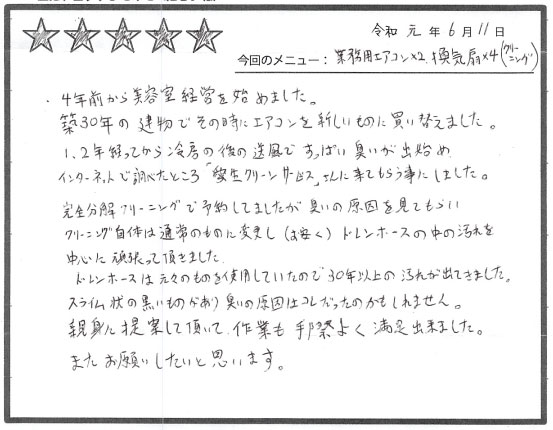 令和 元年 6月 11日
今回のメニュー：業務用エアコン×2 換気扇×4（クリーニング）
・4年前から美容室経営を始めました。
築30年の建物でその時にエアコンを新しいものに買い替えました。
1、2年経ってから冷房の後の送風ですっぱい臭いが出始め
インターネットで調べたところ「愛生クリーンサービス」さんに来てもらう事にしました。
完全分解クリーニングで予約してましたが臭いの原因を見てもらい
クリーニング自体は通常のものに変更し（お安く）ドレンホースの中の汚れを
中心に頑張って頂きました。
ドレンホースは元々のものを使用していたので30年以上の汚れが出てきました。
スライム状の黒いものがあり臭いの原因はコレだったのかもしれません。
親身に提案して頂いて、作業も手際よく満足出来ました。
またお願いしたいと思います。